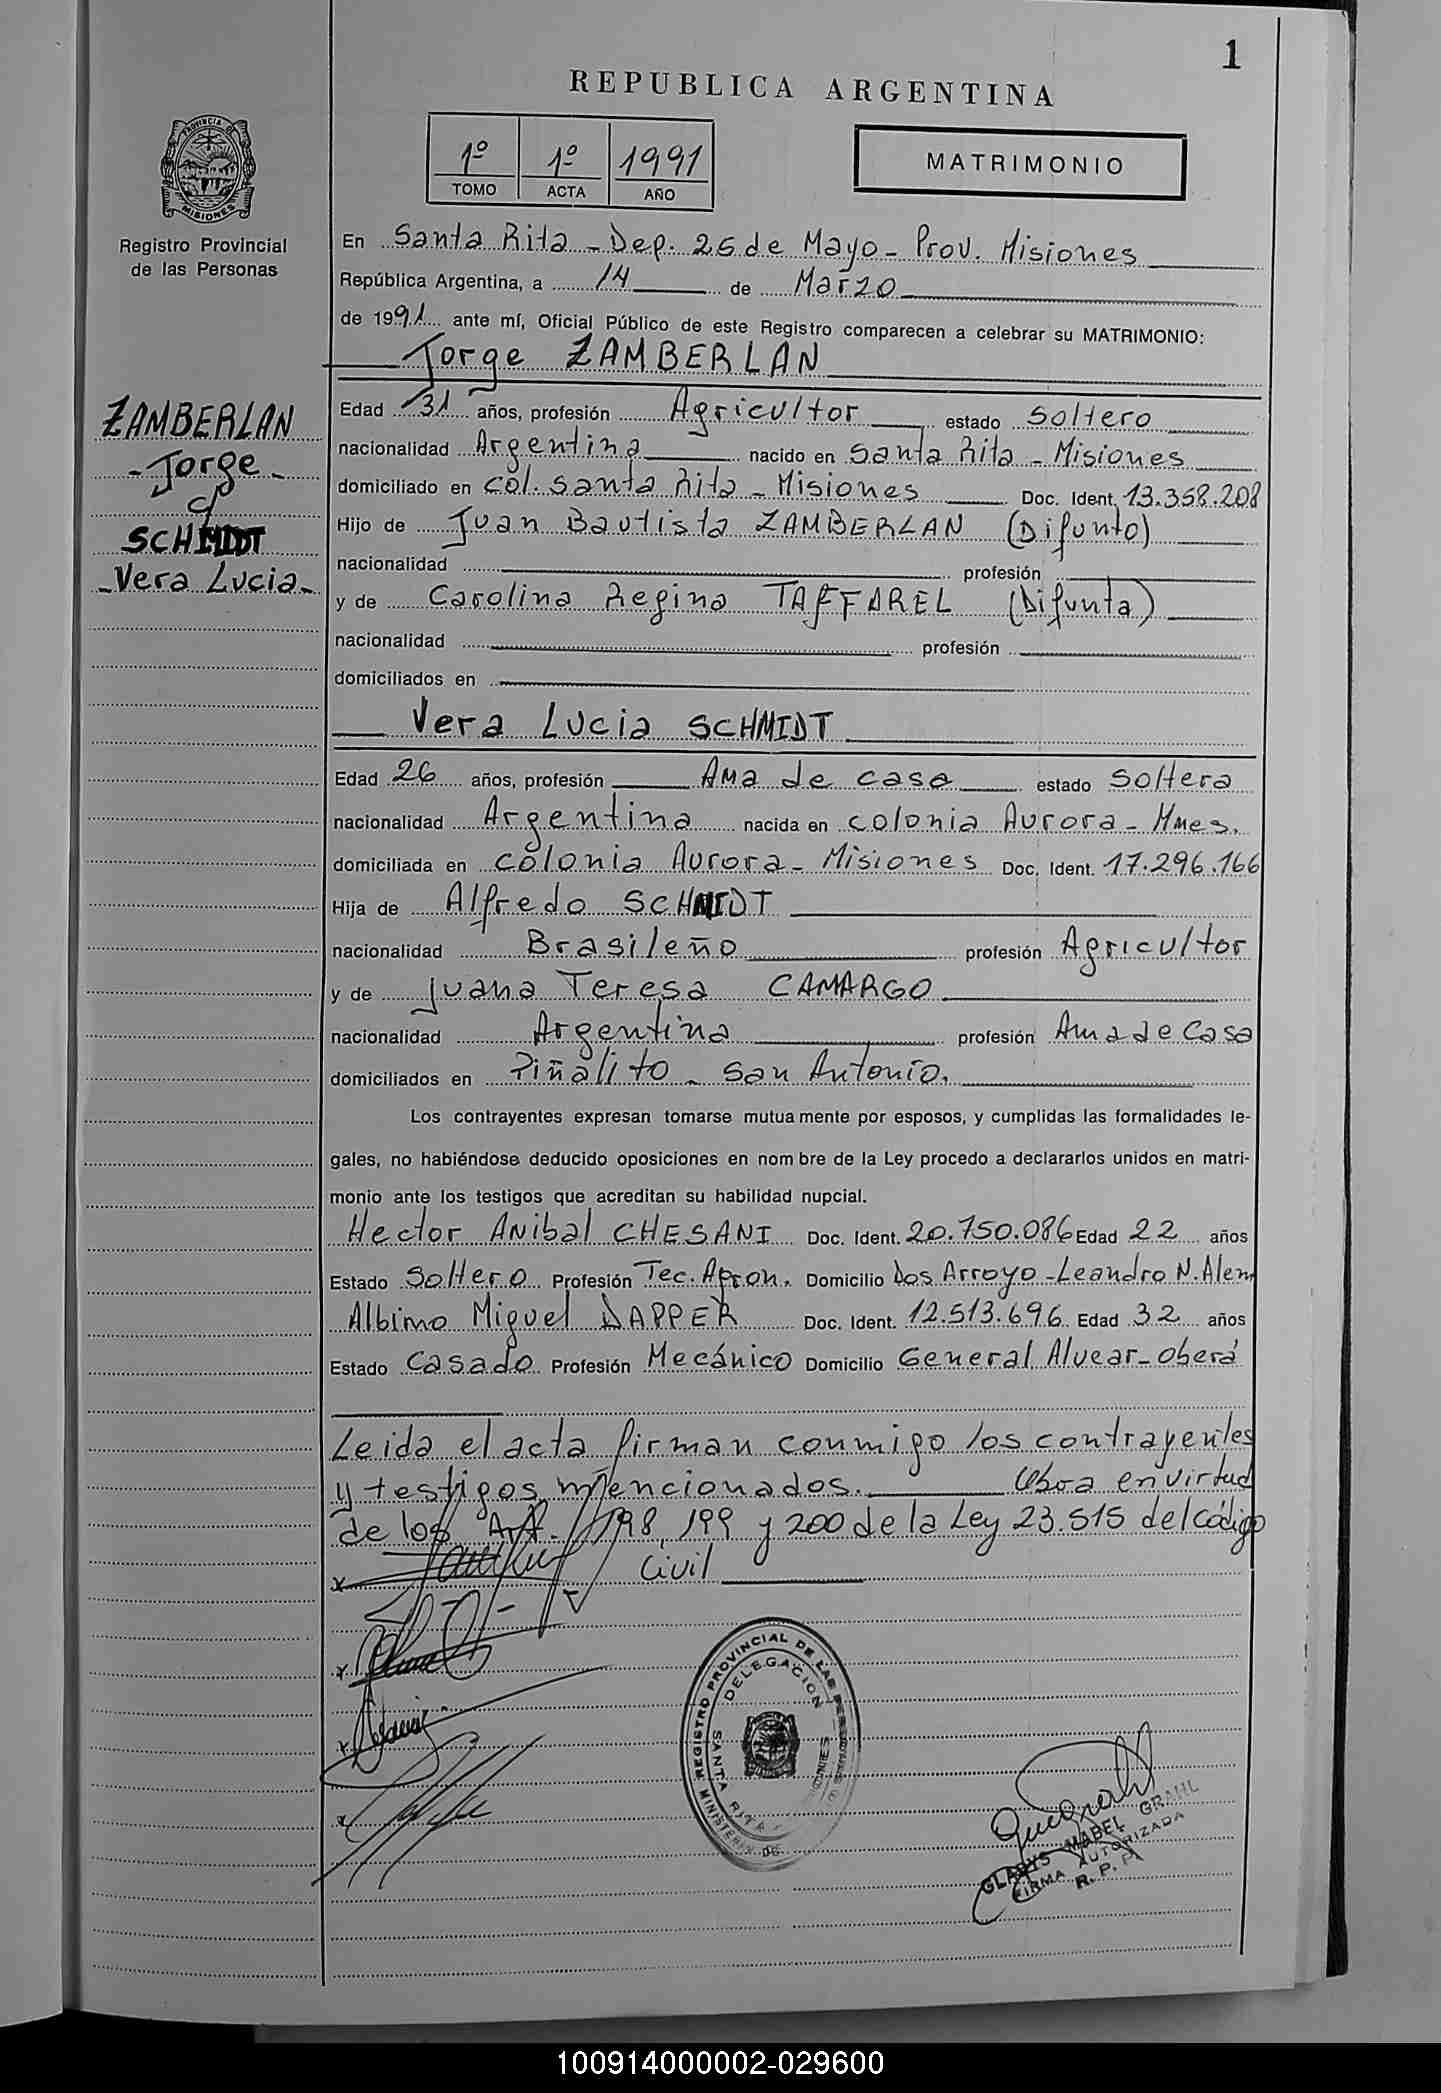 1
REPUBLICA ARGENTINA
1º 1º 1991
TOMO ACTA AÑO
MATRIMONIO
PROVINCIA DE
MISIONES
Registro Provincial
de las Personas
En Santa Rita - Dep. 25 de Mayo - Prov. Misiones
República Argentina, a 14 de Marzo
de 1991 ante mí, Oficial Público de este Registro comparecen a celebrar su MATRIMONIO:
Jorge ZAMBERLAN
ZAMBERLAN
- Jorge -
c/
SCHMIDT
- Vera Lucia -
Edad 31 años, profesión Agricultor estado Soltero
nacionalidad Argentina nacido en Santa Rita - Misiones
domiciliado en Col. Santa Rita - Misiones Doc. Ident. 13.358.208
Hijo de Juan Bautista ZAMBERLAN (Difunto)
nacionalidad profesión
y de Carolina Regina TAFFAREL (Difunta)
nacionalidad profesión
domiciliados en
Vera Lucia SCHMIDT
Edad 26 años, profesión Ama de casa estado Soltera
nacionalidad Argentina nacida en Colonia Aurora - Mnes.
domiciliada en Colonia Aurora - Misiones Doc. Ident. 17.296.166
Hija de Alfredo SCHMIDT
nacionalidad Brasileño profesión Agricultor
y de Juana Teresa CAMARGO
nacionalidad Argentina profesión Ama de Casa
domiciliados en Piñalito - San Antonio.
Los contrayentes expresan tomarse mutuamente por esposos, y cumplidas las formalidades le-
gales, no habiéndose deducido oposiciones en nombre de la Ley procedo a declararlos unidos en matri-
monio ante los testigos que acreditan su habilidad nupcial.
Hector Anibal CHESANI Doc. Ident. 20.750.086 Edad 22 años
Estado Soltero Profesión Tec. Apron. Domicilio Dos Arroyo - Leandro N. Alem
Albimo Miguel DAPPER Doc. Ident. 12.513.696 Edad 32 años
Estado Casado Profesión Mecánico Domicilio General Alvear - Oberá
Leida el acta firman conmigo los contrayentes
y testigos mencionados. Obra en virtud
de los Art. 198, 199 y 200 de la Ley 23.515 del código
Civil
x
x
x
x
REGISTRO PROVINCIAL DE LAS PERSONAS
DELEGACION
SANTA RITA
MISIONES
MINISTERIO DE
GLADYS MABEL GRAHL
FIRMA AUTORIZADA
R. P. P.
100914000002-029600